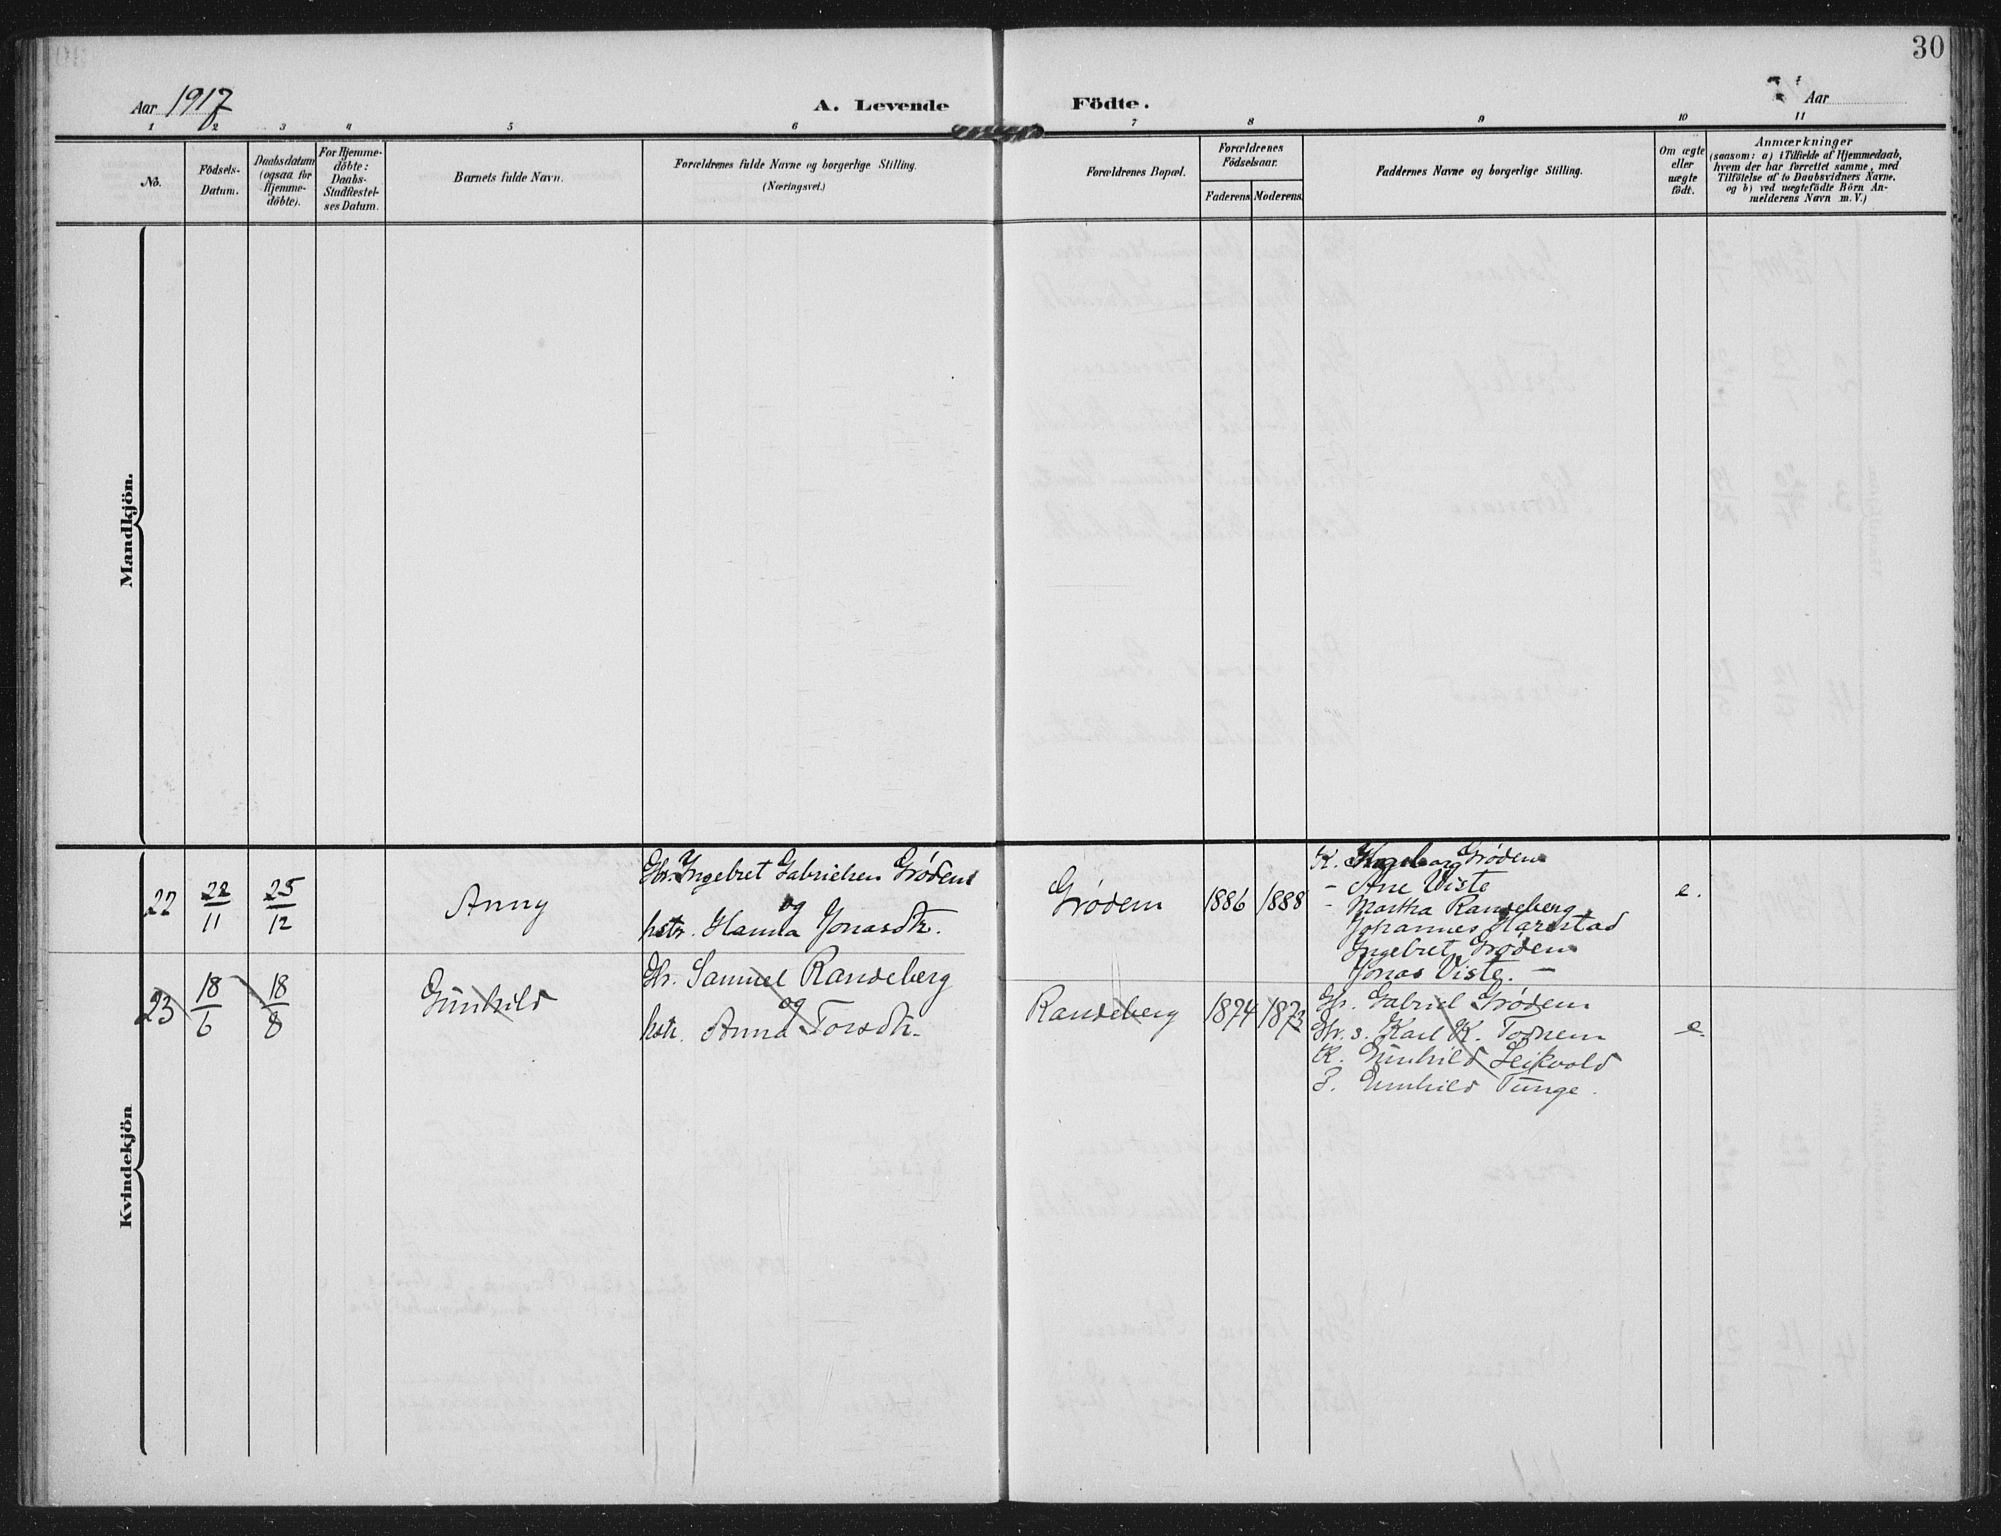 30
Aar 1917
A. Levende
Födte.
Aar
1 2 3 4 5 6 7 8 9 10 11
No.
Födsels-
Datum.
Daabsdatum
(ogsaa for
Hjemme-
döbte).
For Hjemme-
döbte:
Daabs-
Stadfæstel-
ses Datum.
Barnets fulde Navn.
Forældrenes fulde Navne og borgerlige Stilling.
(Næringsvei.)
Forældrenes Bopæl.
Forældrenes
Födselsaar.
Faderens Moderens
Faddernes Navne og borgerlige Stilling.
Om ægte
eller
uægte
födt.
Anmærkninger
(saasom: a) i Tilfælde af Hjemmedaab,
hvem der har forrettet samme, med
Tilföielse af to Daabsvidners Navne,
og b) ved uægtefödte Börn An-
melderens Navn m. V.)
Mandkjön.
Kvindekjön
22
22
11
25
12
Anny
Gbr. Ingebret Gabrielsen Grødem
og
hstr. Hanna Jonasdtr.
Grødem
1886 1888
K. Ingeborg Grødem
- Ane Viste
- Martha Randeberg
Johannes Harestad
Ingebret Grødem
Jonas Viste. -
e.
23
18
6
18
8
Gunhild
Gbr. Samuel Randeberg
og
hstr. Anna Torsdtr.
Randeberg
1874 1873
Gbr. Gabriel Grødem
Gbr. s. Karl K. Todnem
K. Gunhild Leikvold
P. Gunhild Tunge.
e.